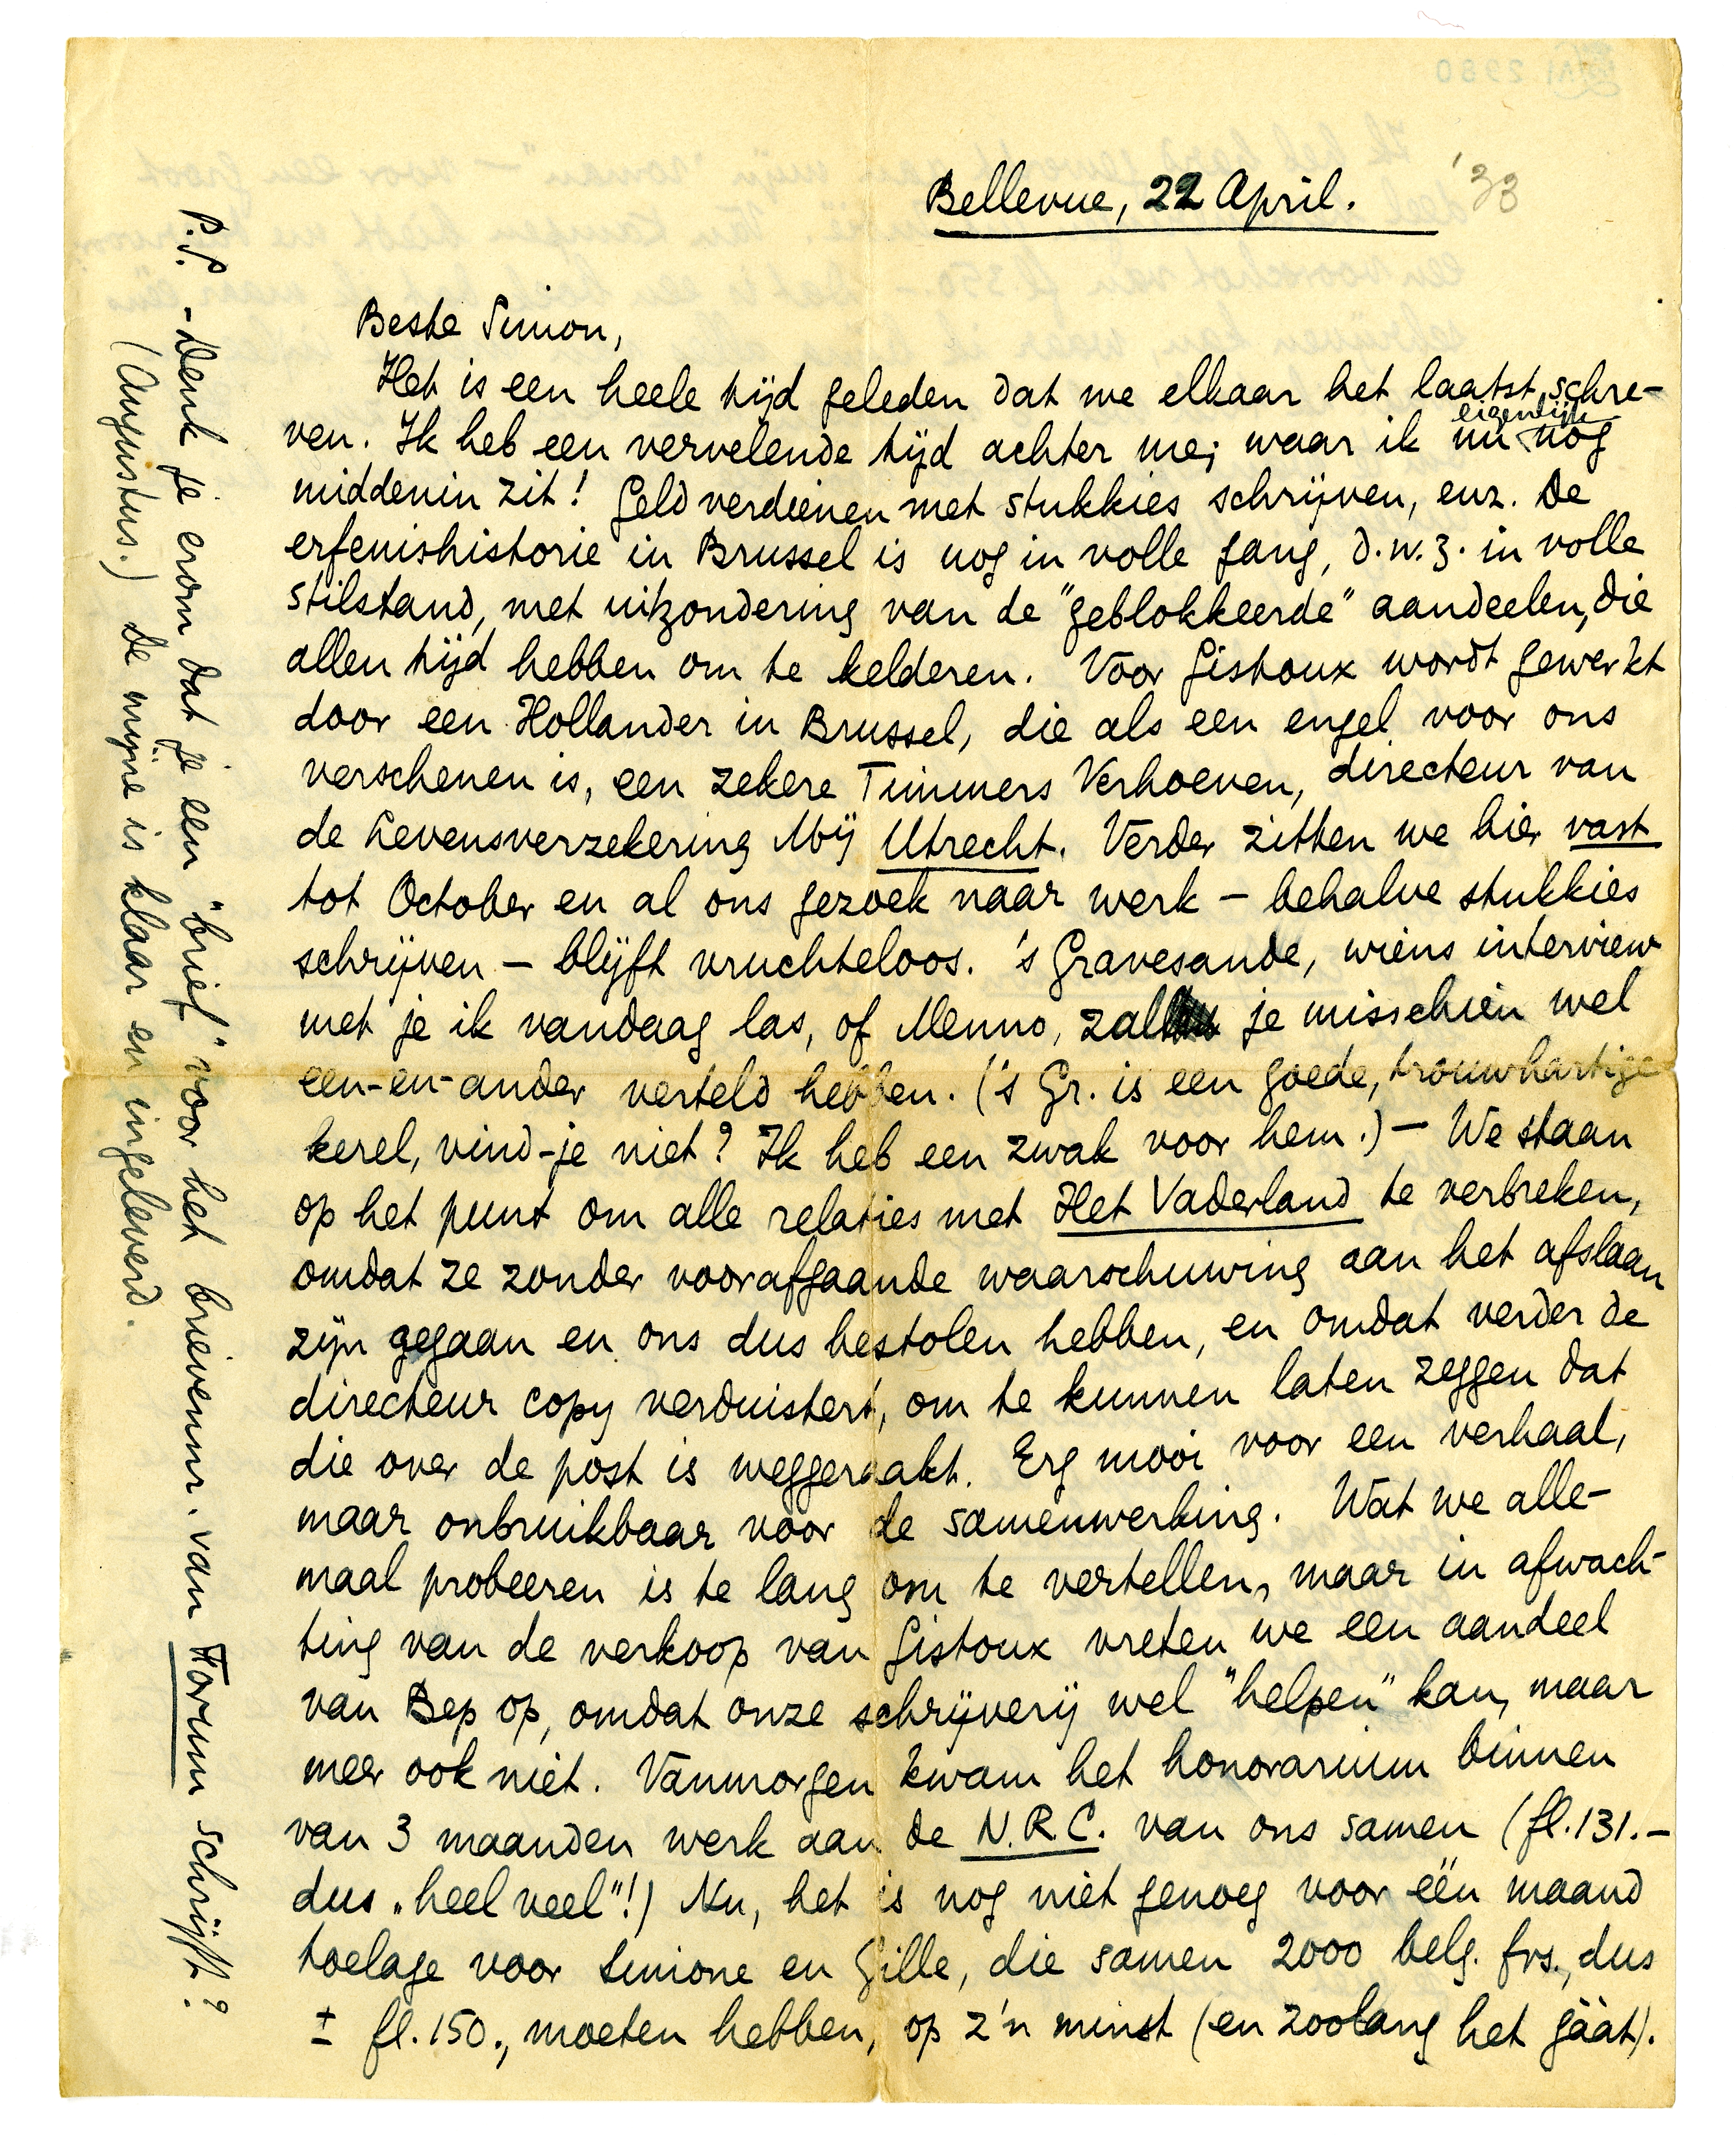 Bellevue, 22 April. '33
Beste Simon,
Het is een heele tijd geleden dat we elkaar het laatst schre-
ven. Ik heb een vervelende tijd achter me; waar ik nu eigenlijk nog
middenin zit! Geld verdienen met stukkies schrijven, enz. De
erfenishistorie in Brussel is nog in volle gang, d.w.z. in volle
stilstand, met uitzondering van de "geblokkeerde" aandeelen, die
allen tijd hebben om te kelderen. Voor Gistoux wordt gewerkt
door een Hollander in Brussel, die als een engel voor ons
verschenen is, een zekere Timmers Verhoeven, directeur van
de Levensverzekering Mij Utrecht. Verder zitten we hier vast
tot October en al ons gezoek naar werk – behalve stukkies
schrijven – blijft vruchteloos. 's Gravesande, wiens interview
met je ik vandaag las, of Menno, zal je misschien wel
een-en-ander verteld hebben. ('s Gr. is een goede, trouwhartige
kerel, vind-je niet? Ik heb een zwak voor hem.) – We staan
op het punt om alle relaties met Het Vaderland te verbreken,
omdat ze zonder voorafgaande waarschuwing aan het afslaan
zijn gegaan en ons dus bestolen hebben, en omdat verder de
directeur copy verduistert, om te kunnen laten zeggen dat
die over de post is weggeraakt. Erg mooi voor een verhaal,
maar onbruikbaar voor de samenwerking. Wat we alle-
maal probeeren is te lang om te vertellen, maar in afwach-
ting van de verkoop van Gistoux vreten we een aandeel
van Bep op, omdat onze schrijverij wel "helpen" kan, maar
meer ook niet. Vanmorgen kwam het honorarium binnen
van 3 maanden werk aan de N.R.C. van ons samen (fl.131.–
dus „heel veel"!) Nu, het is nog niet genoeg voor één maand
toelage voor Simone en Gille, die samen 2000 belg. frs., dus
± fl.150., moeten hebben, op z'n minst (en zoolang het gáát).
P.S. – Denk je erom dat je een "brief" voor het brievennr. van Forum schrijft?
(Augustus.) De mijne is klaar en ingeleverd.